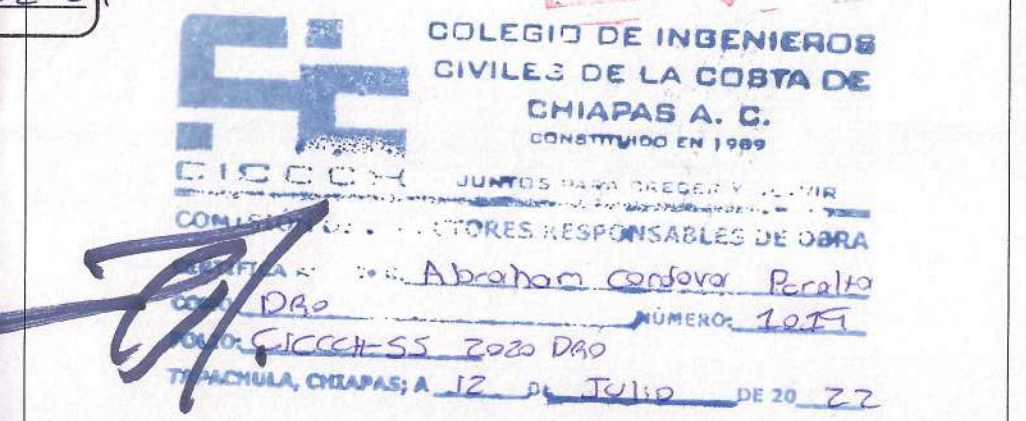 COLEGIO DE INGENIEROS
CIVILES DE LA COSTA DE
CHIAPAS A. C.
CONSTITUIDO EN 1989
CICCCH
JUNTOS PARA CRECER Y
COMISION DE DIRECTORES RESPONSABLES DE OBRA
CERTIFICA Abraham cordova Peralta
COMO: DRO NÚMERO: 1019
FOLIO: CICCCH-SS 2020 DRO
TAPACHULA, CHIAPAS; A 12 DE Julio DE 20 22